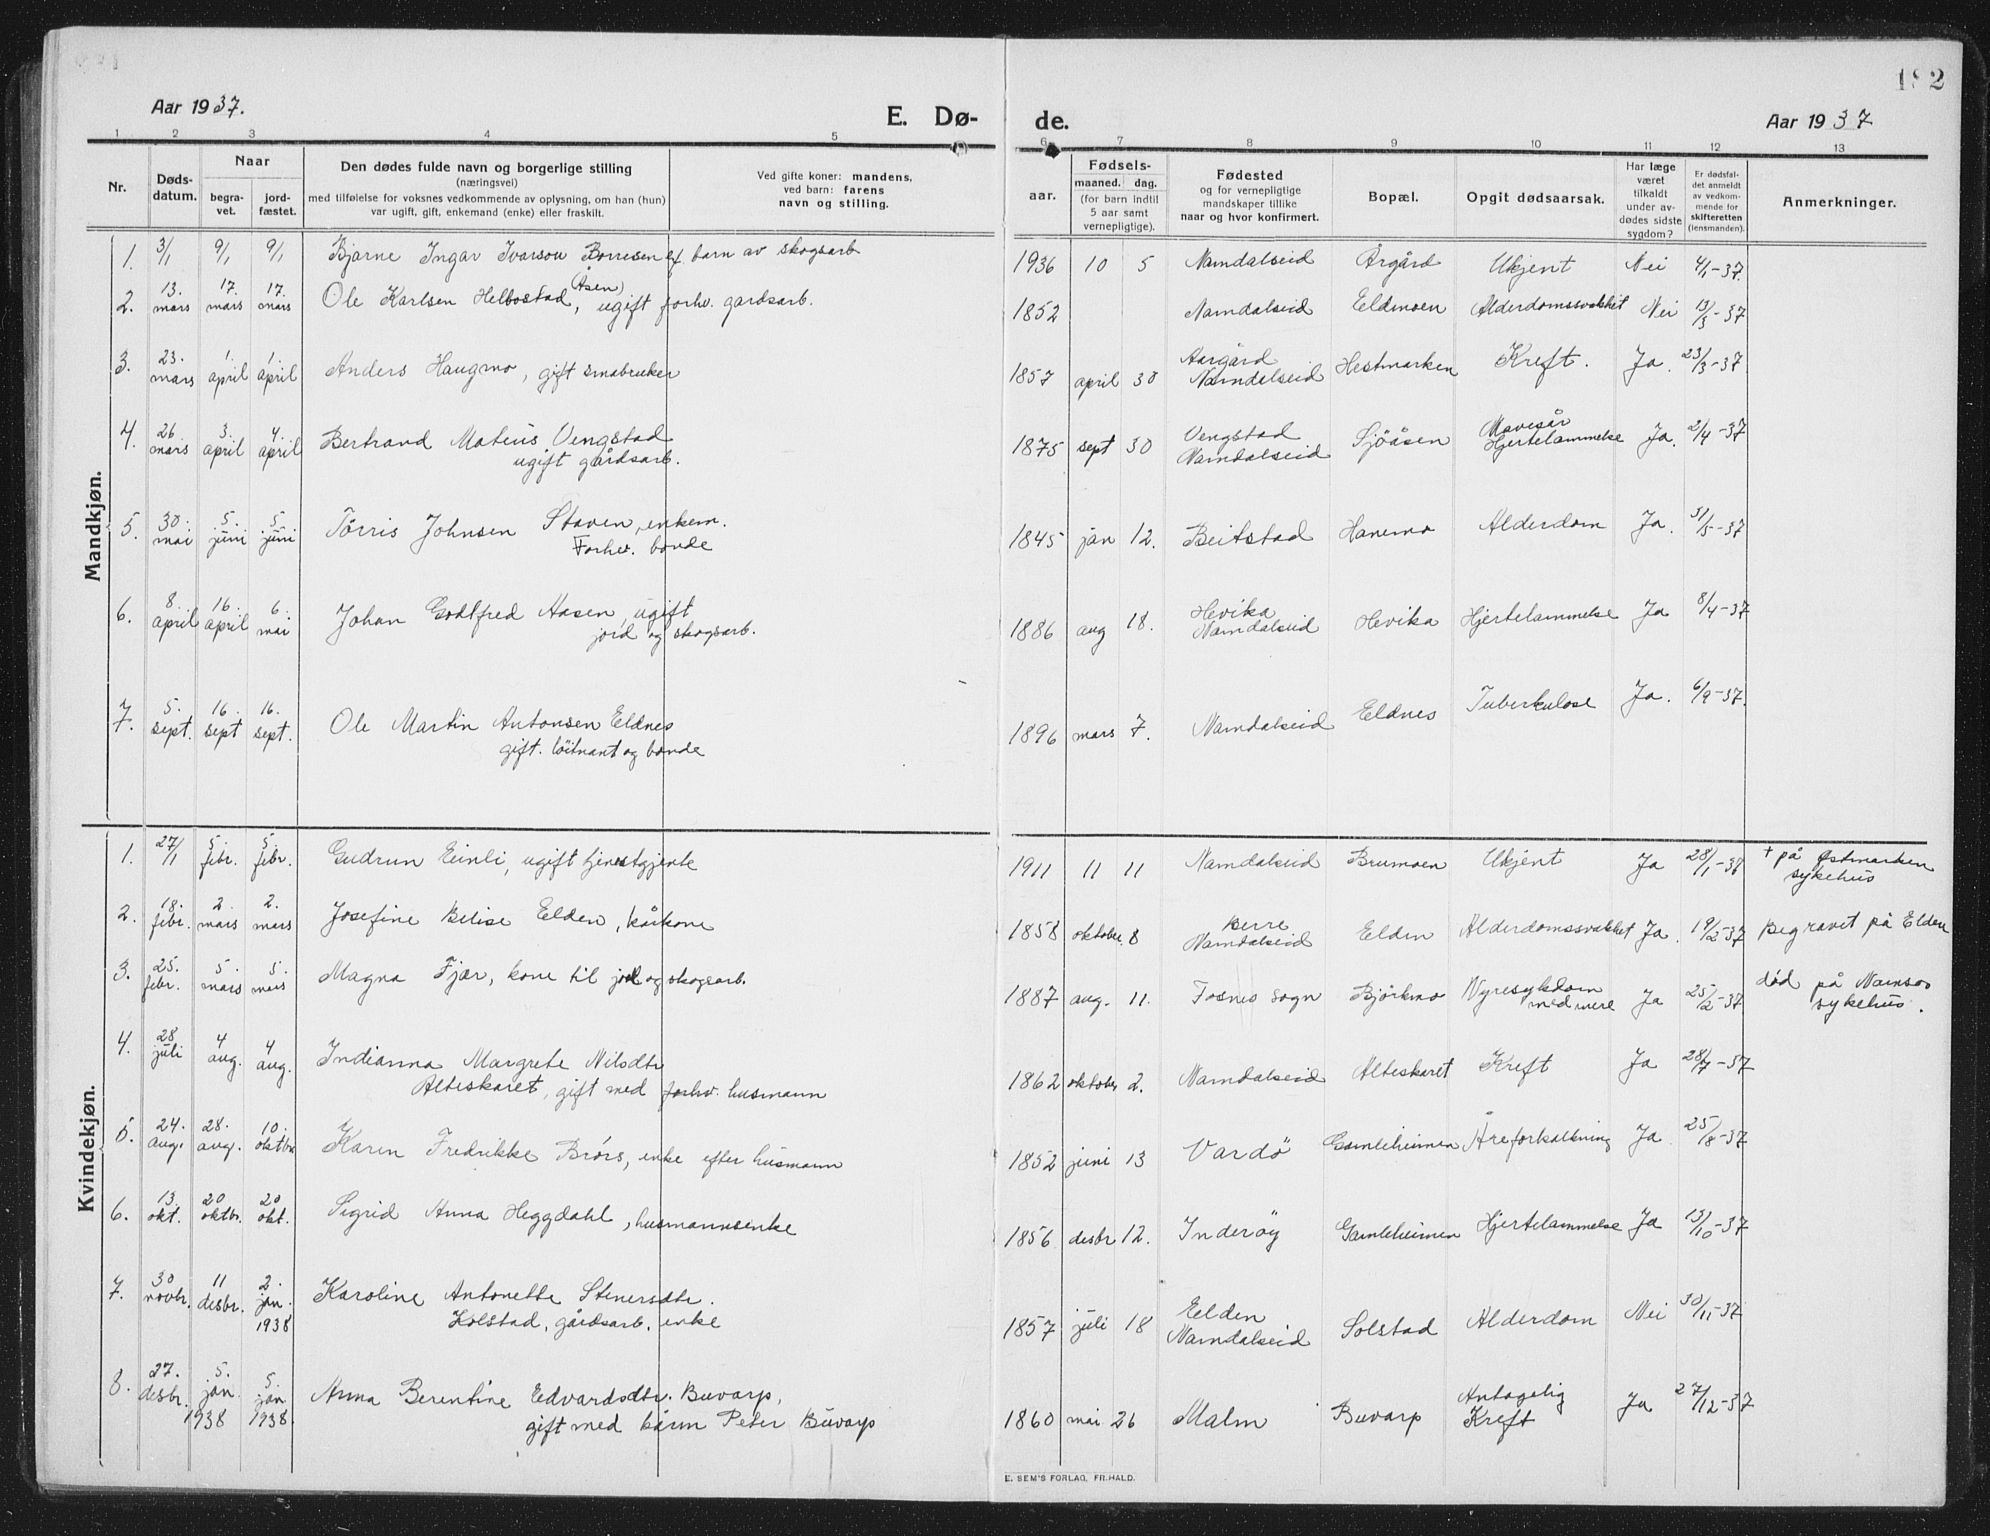 182
Aar 1937. E. Dø- de. Aar 1937
1 2 3 4 5 6 7 8 9 10 11 12 13
Nr. Døds-datum. Naar begra-vet. jord-fæstet. Den dødes fulde navn og borgerlige stilling (næringsvei) med tilføielse for voksnes vedkommende av oplysning, om han (hun) var ugift, gift, enkemand (enke) eller fraskilt. Ved gifte koner: mandens, ved barn: farens navn og stilling. aar. Fødsels- maaned. dag. (for barn indtil 5 aar samt vernepligtige). Fødested og for vernepligtige mandskaper tillike naar og hvor konfirmert. Bopæl. Opgit dødsaarsak. Har læge været tilkaldt under av-dødes sidste sygdom? Er dødsfal-det anmeldt av vedkom-mende for skifteretten (lensmanden). Anmerkninger.
Mandkjøn.
1. 3/1 9/1 9/1 Bjarne Ingar Ivarson Borresen barn av skogsarb 1936 10 5 Namdalseid Årgård Ukjent Nei 4/1-37.
2. 13. mars 17. mars 17. mars Ole Karlsen Helbostad, (Åsen) ugift forhv. gardsarb. 1852 Namdalseid Eldmoen Alderdomssvakhet Nei 13/3-37
3. 23. mars 1. april 1. april Anders Haugmo, gift småbruker 1857 april 30 Aargård Namdalseid Hestmarken Kreft. Ja. 23/3-37
4. 26. mars 3. april 4. april Bertrand Matius Vengstad
ugift gårdsarb. 1875 sept 30 Vengstad Namdalseid Sjöåsen Mavesår Hjertelammelse Ja. 2/4-37
5. 30. mai 5. juni 5. juni Tørris Johnsen Staven, enkem.
Forhv. bonde 1845 jan 12. Beitstad Hanemo Alderdom Ja. 31/5-37
6. 8. april 16. april 6. mai Johan Godtfred Aasen, ugift
jord og skogsarb. 1886 aug 18. Hevika Namdalseid Hevika Hjertelammelse Ja 8/4-37
7. 5. sept. 16. sept 16. sept. Ole Martin Antonsen Eldnes
gift. löitnant og bonde 1896 mars 7. Namdalseid Eldnes Tuberkulose Ja. 6/9-37.
Kvindekjøn.
1. 27/1 5. febr. 5. febr. Gudrun Einli, ugift tjenestgjente 1911 11 11 Namdalseid Brumoen Ukjent Ja 28/1-36 + på Østmarken sykehus
2. 18. febr. 2. mars 2. mars Josefine Belise Elden, kårkone 1858 oktober 8 Berre Namdalseid Elden Alderdomssvakhet Ja. 19/2-37 Begravet på Elden
3. 25. febr. 5. mars 5. mars Magna Fjær, kone til jord og skogsarb. 1887 aug. 11. Fosnes sogn Björkmo Nyresykdom med mere Ja 25/2-37 död på Namsos sykehus.
4. 28 juli 4 aug. 4 aug. Indianna Margrete Nilsdtr
Alteskaret, gift med forhv. husmann 1862 oktober 2. Namdalseid Alteskaret Kreft Ja 28/7-37
5. 24. aug. 28. aug. 10. oktbr Karen Fredrikke Brørs, enke efter husmann 1852 juni 13 Vardö Gamleheimen Åreforkalkning Ja 25/8-37
6. 13. okt. 20 oktbr. 20 okt. Sigrid Anna Heggdahl, husmannsenke 1856 desbr 12. Inderøy Gamleheimen Hjertelammelse Ja 13/10-37
7. 30 novbr. 11 desbr. 2. jan. 1938 Karoline Antonette Stenersdtr.
Solstad, gårdsarb. enke 1857 juli 18 Elden Namdalseid Solstad Alderdom Nei 30/11-37
8. 27. desbr. 5. jan. 1938 5. jan 1938. Anna Berentine Edvardsdtr. Buvarp,
gift med kårm Peter Buvarp 1860 mai 26 Malm Buvarp Antagelig Kreft Ja 27/12-37
E. SEM'S FORLAG, FR.HALD.